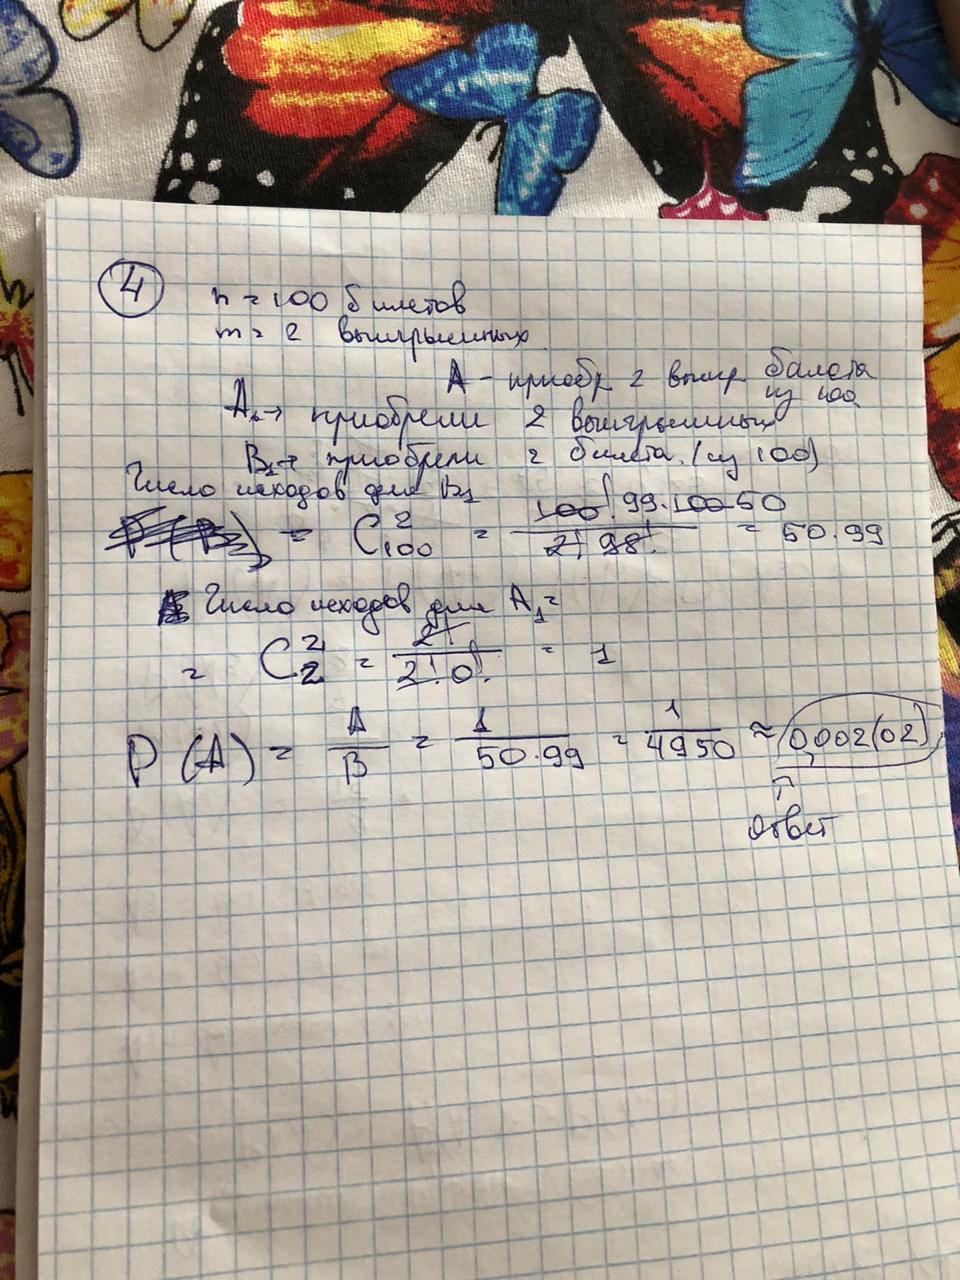 4
n = 100 билетов
m = 2 выигрышных
A - приобр 2 выигр билета из 100
A₁→ приобрели 2 выигрышных
B₁→ приобрели 2 билета (из 100)
Число исходов для B₁
= C²₁₀₀ = 100! 99·100 50 / 2! 98! = 50·99
Число исходов для A₁ =
= C²₂ = 2! / 2! 0! = 1
P(A) = A/B = 1/50·99 = 1/4950 ≈ 0,0002(02)
ответ